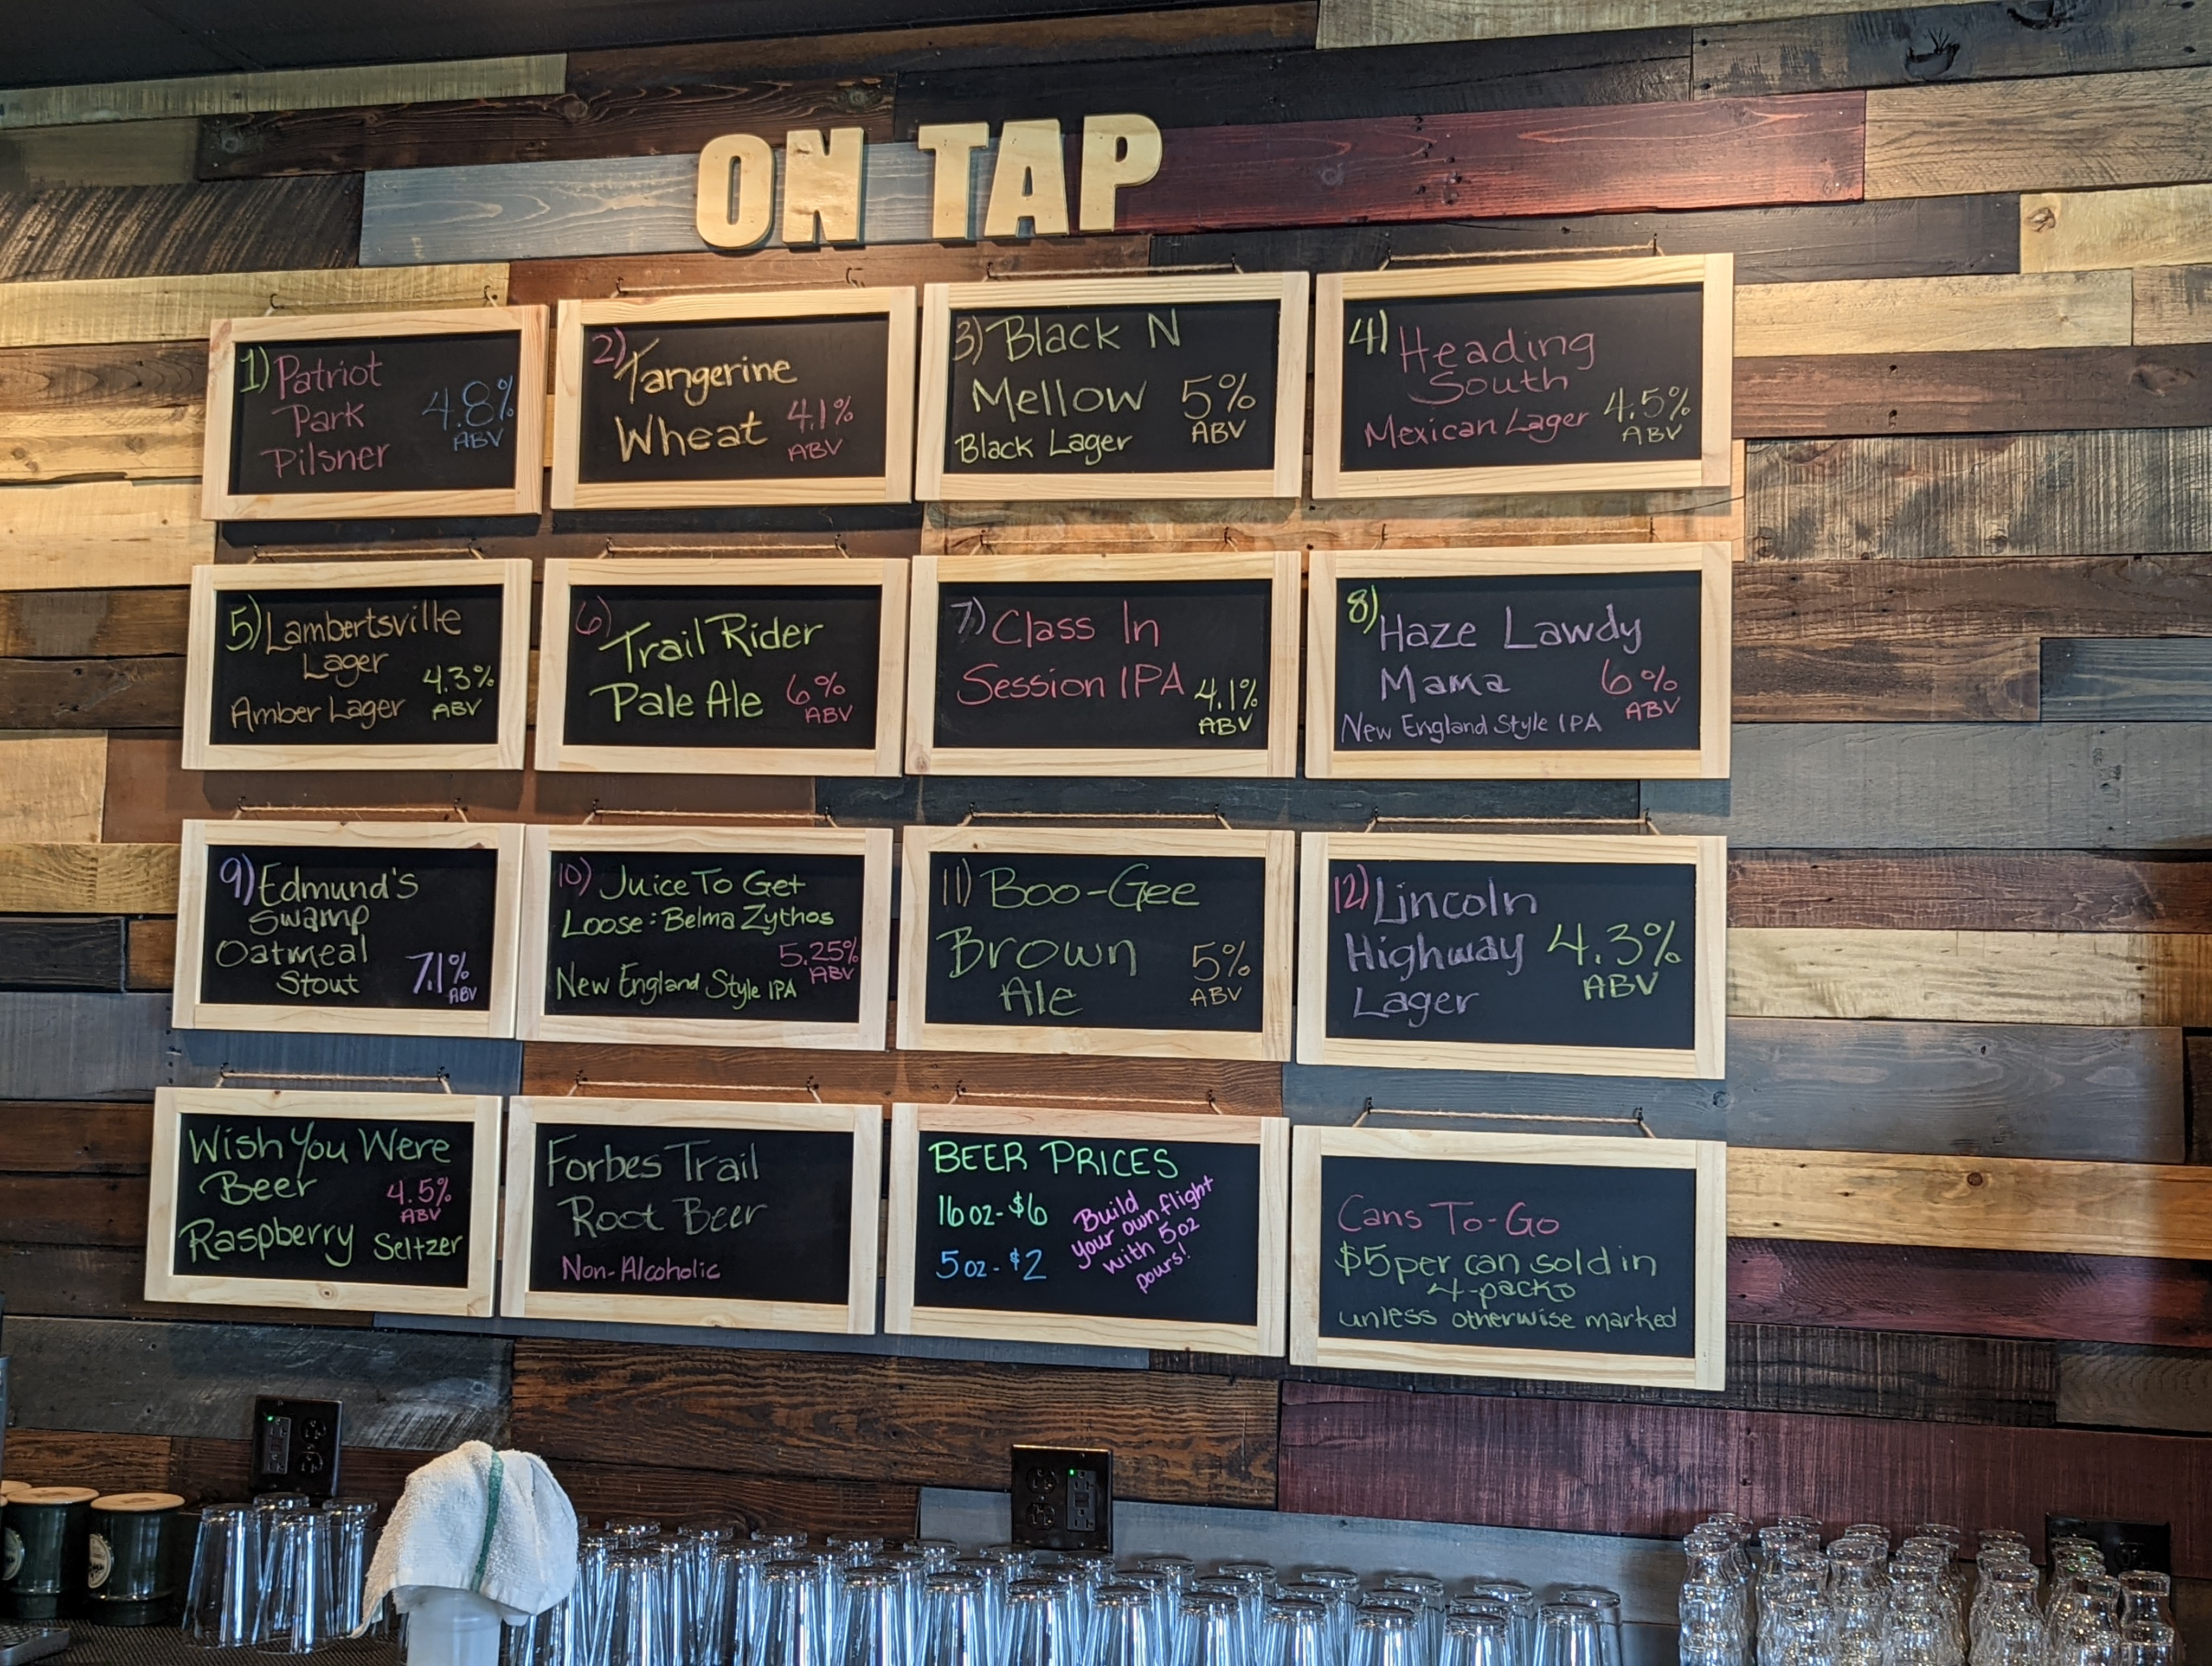 ON TAP
1) Patriot
Park
Pilsner
4.8%
ABV
2) Tangerine
Wheat
4.1%
ABV
3) Black N
Mellow
Black Lager
5%
ABV
4) Heading
South
Mexican Lager
4.5%
ABV
5) Lambertsville
Lager
Amber Lager
4.3%
ABV
6) Trail Rider
Pale Ale
6%
ABV
7) Class In
Session IPA
4.1%
ABV
8) Haze Lawdy
Mama
6%
ABV
New England Style IPA
9) Edmund's
Swamp
Oatmeal
Stout
7.1%
ABV
10) Juice To Get
Loose: Belma Zythos
5.25%
ABV
New England Style IPA
11) Boo-Gee
Brown
Ale
5%
ABV
12) Lincoln
Highway
Lager
4.3%
ABV
Wish You Were
Beer
4.5%
ABV
Raspberry Seltzer
Forbes Trail
Root Beer
Non-Alcoholic
BEER PRICES
16 oz - $6
5 oz - $2
Build
your own flight
with 5oz
pours!
Cans To-Go
$5 per can sold in
4-packs
unless otherwise marked